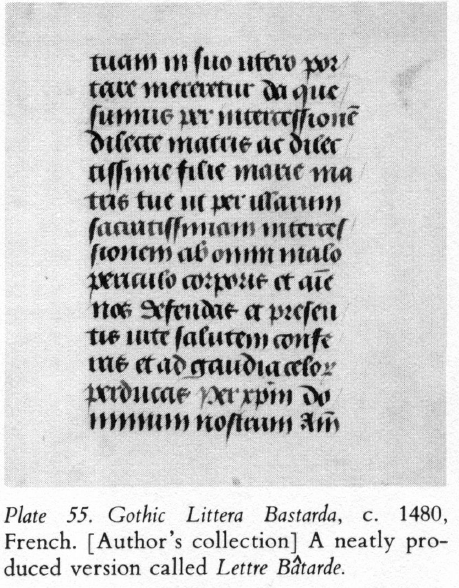 tuam in suo utero por
tare mereretur da que
sumus per intercessionē
dilecte matris ac dilec
tissime filie marie ma
tris tue ut per illarum
sacratissimam interces
sionem ab omni malo
periculo corporis et aīe
nos defendas et presen
tis uite salutem confe
ras et ad gaudia celoꝝ
perducas Per xp̄m do
minum nostrum Am̄
Plate 55. Gothic Littera Bastarda, c. 1480,
French. [Author's collection] A neatly pro-
duced version called Lettre Bâtarde.